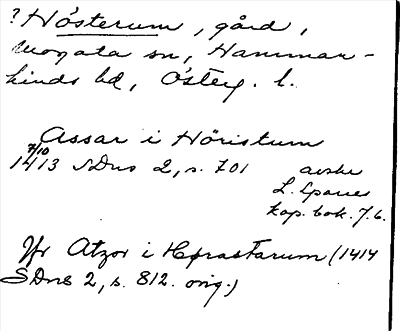 ? Hösterum, gård,
Mogata sn, Hammar-
kinds hd, Österg. l.
Assar i Höristum
7/10
1413 SDns 2, s. 701 avskr
L. Sparres
kop. bok. 7.6.
Jfr Atzor i Høfrastarum (1414
SDns 2, s. 812. orig.)